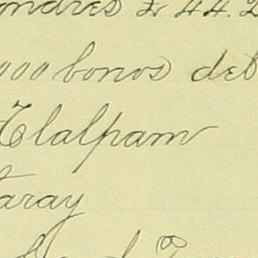 ondres £ 44.2
000 bonos del
Tlalpam
aray